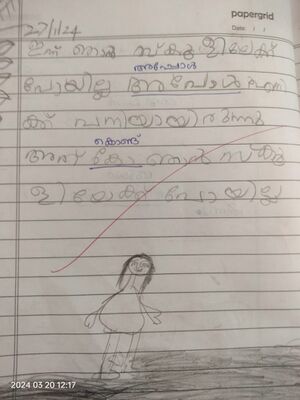 papergrid
Date: / /
27/1/24
ഇന്ന് ഞാൻ സ്കൂളിലേക്ക്
അപ്പോൾ
പോയില്ല അപോൾ എനി
ക്ക് പനിയായിരുന്നു
കൊണ്ട്
അത് കോ ഞാൻ സ്കൂ
ളിലേക്ക് പോയില്ല
2024 03 20 12:17